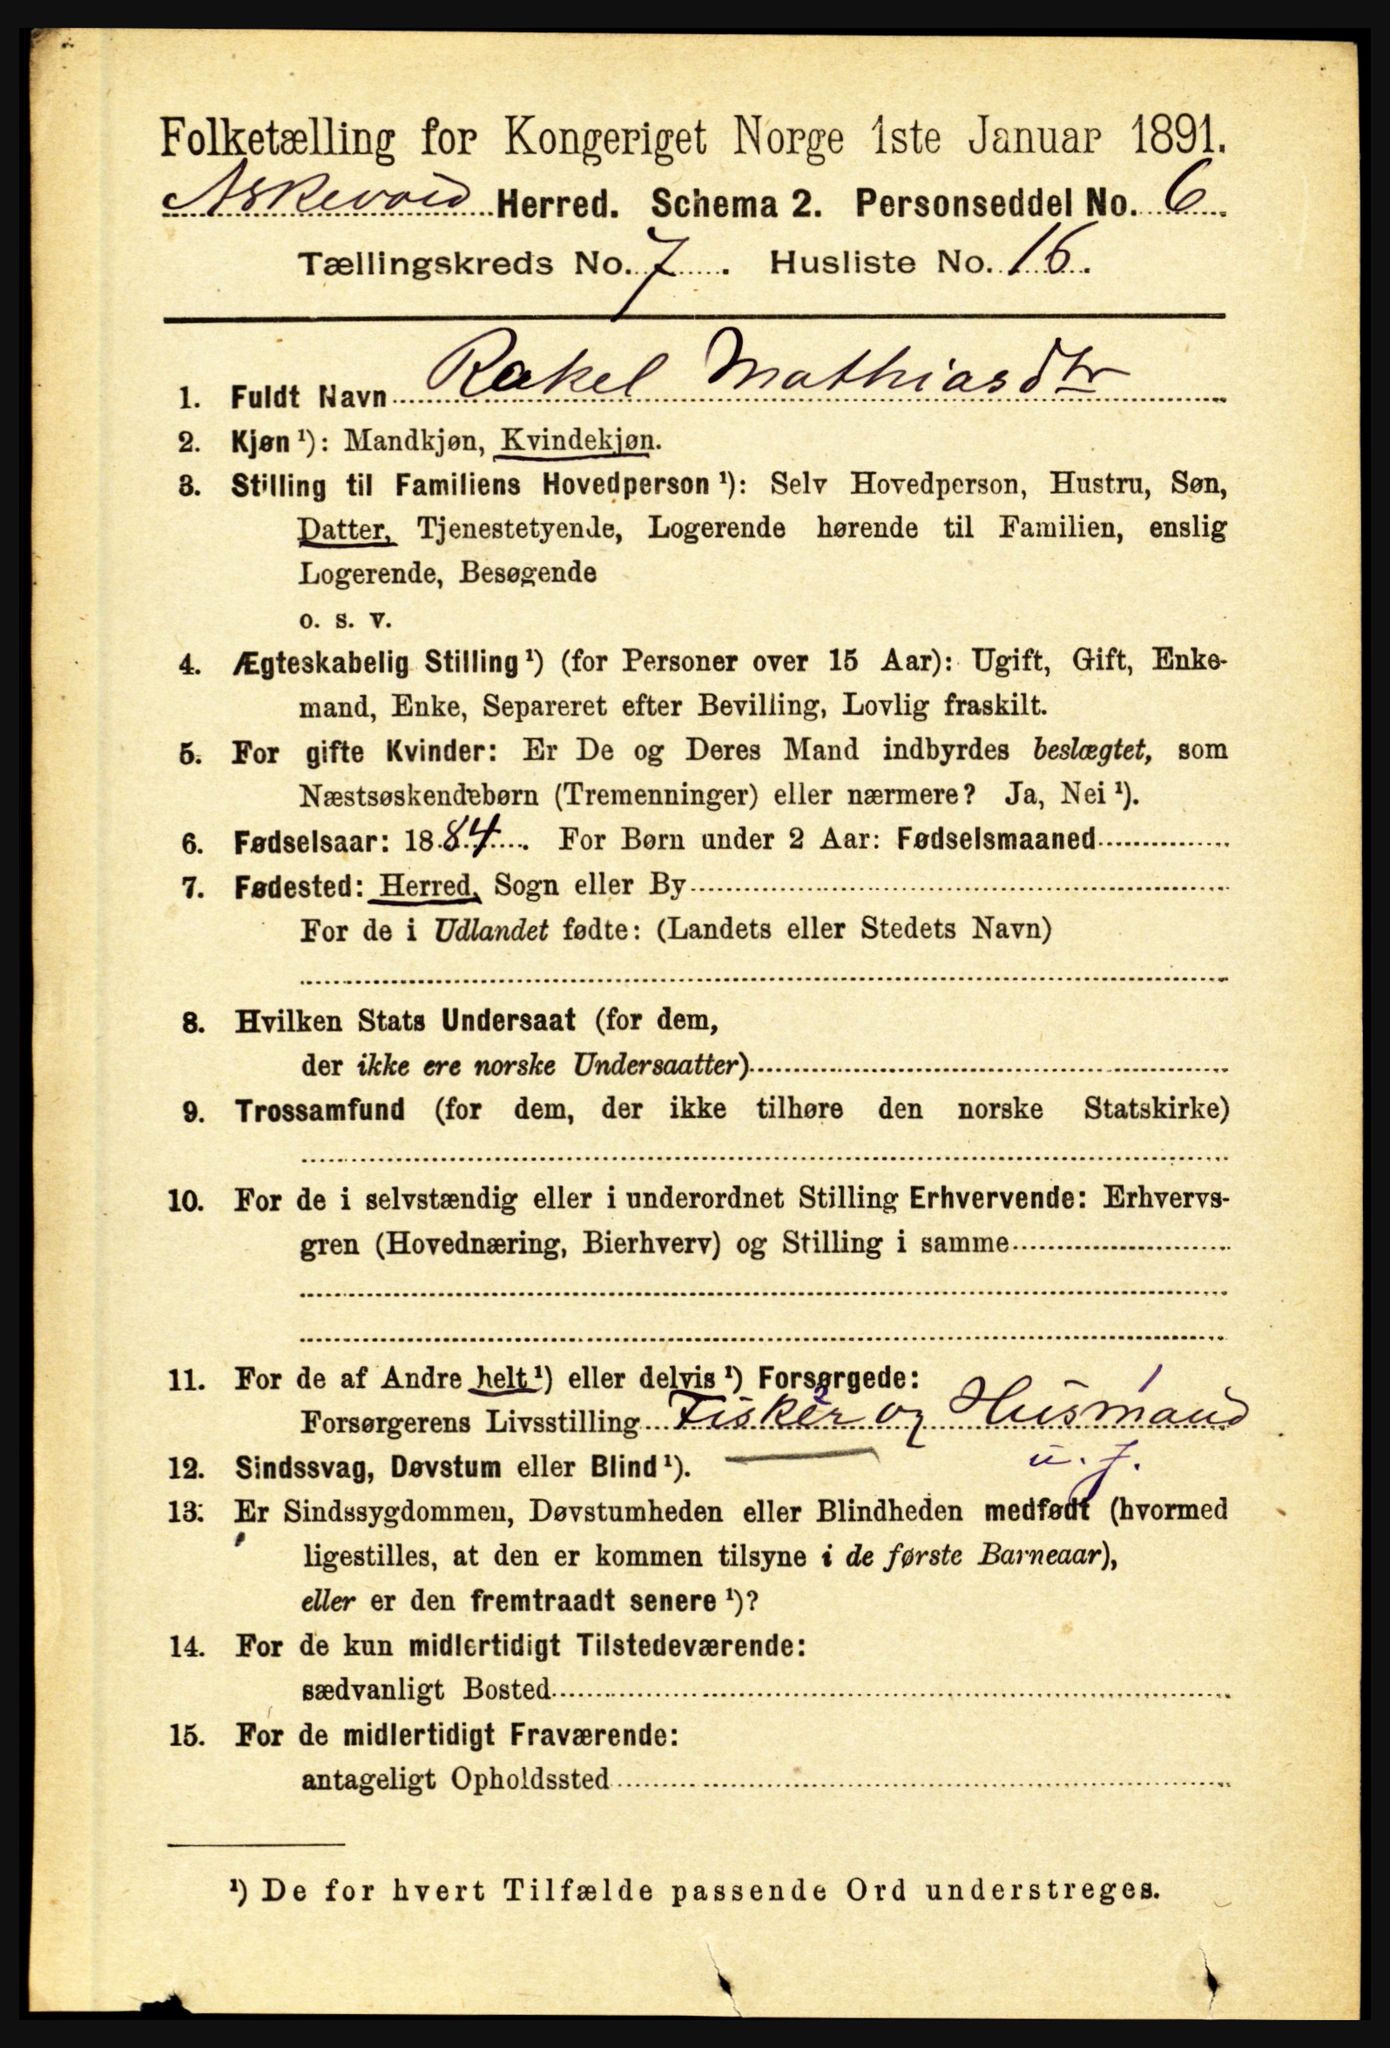 Folketælling for Kongeriget Norge 1ste Januar 1891.
Askevold Herred. Schema 2. Personseddel No. 6
Tællingskreds No. 7. Husliste No. 16.
1. Fuldt Navn Rakel Mathiasdtr
2. Kjøn ¹): Mandkjøn, Kvindekjøn.
3. Stilling til Familiens Hovedperson ¹): Selv Hovedperson, Hustru, Søn,
Datter, Tjenestetyende, Logerende hørende til Familien, enslig
Logerende, Besøgende
o. s. v.
4. Ægteskabelig Stilling ¹) (for Personer over 15 Aar): Ugift, Gift, Enke-
mand, Enke, Separeret efter Bevilling, Lovlig fraskilt.
5. For gifte Kvinder: Er De og Deres Mand indbyrdes beslægtet, som
Næstsøskendebørn (Tremenninger) eller nærmere? Ja, Nei ¹).
6. Fødselsaar: 1884. For Børn under 2 Aar: Fødselsmaaned
7. Fødested: Herred, Sogn eller By
For de i Udlandet fødte: (Landets eller Stedets Navn)
8. Hvilken Stats Undersaat (for dem,
der ikke ere norske Undersaatter)
9. Trossamfund (for dem, der ikke tilhøre den norske Statskirke)
10. For de i selvstændig eller i underordnet Stilling Erhvervende: Erhvervs-
gren (Hovednæring, Bierhverv) og Stilling i samme
11. For de af Andre helt ¹) eller delvis ¹) Forsørgede:
Forsørgerens Livsstilling Fisker og Husmand
u. j.
12. Sindssvag, Døvstum eller Blind ¹).
13. Er Sindssygdommen, Døvstumheden eller Blindheden medfødt (hvormed
ligestilles, at den er kommen tilsyne i de første Barneaar),
eller er den fremtraadt senere ¹)?
14. For de kun midlertidigt Tilstedeværende:
sædvanligt Bosted
15. For de midlertidigt Fraværende:
antageligt Opholdssted
¹) De for hvert Tilfælde passende Ord understreges.